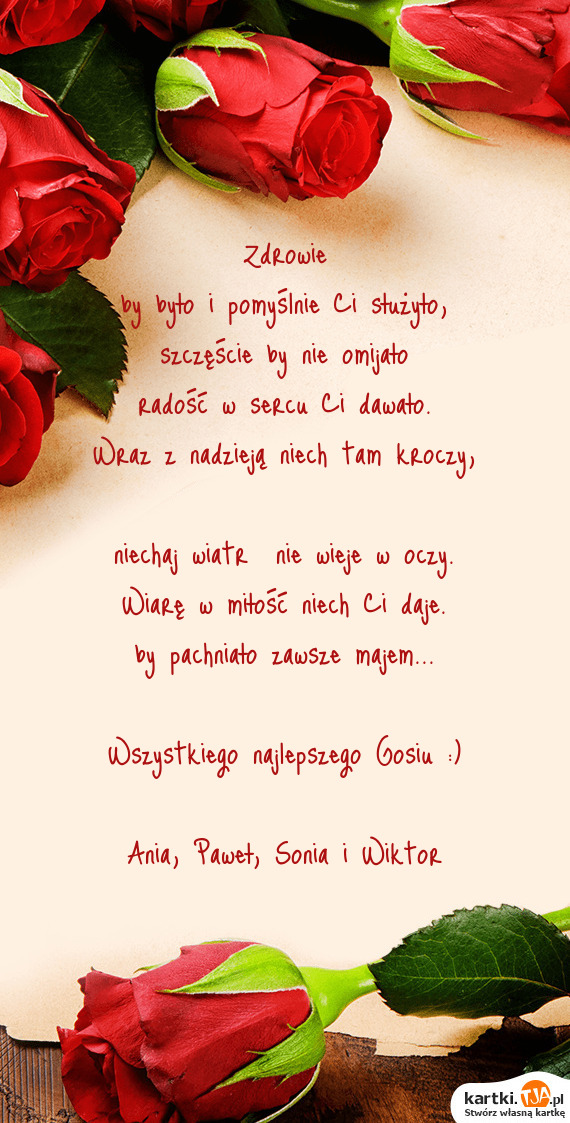 Zdrowie
by było i pomyślnie Ci służyło,
szczęście by nie omijało
radość w sercu Ci dawało.
Wraz z nadzieją niech tam kroczy,
niechaj wiatr nie wieje w oczy.
Wiarę w miłość niech Ci daje.
by pachniało zawsze majem...
Wszystkiego najlepszego Gosiu :)
Ania, Paweł, Sonia i Wiktor
kartki.TJA.pl
Stwórz własną kartkę